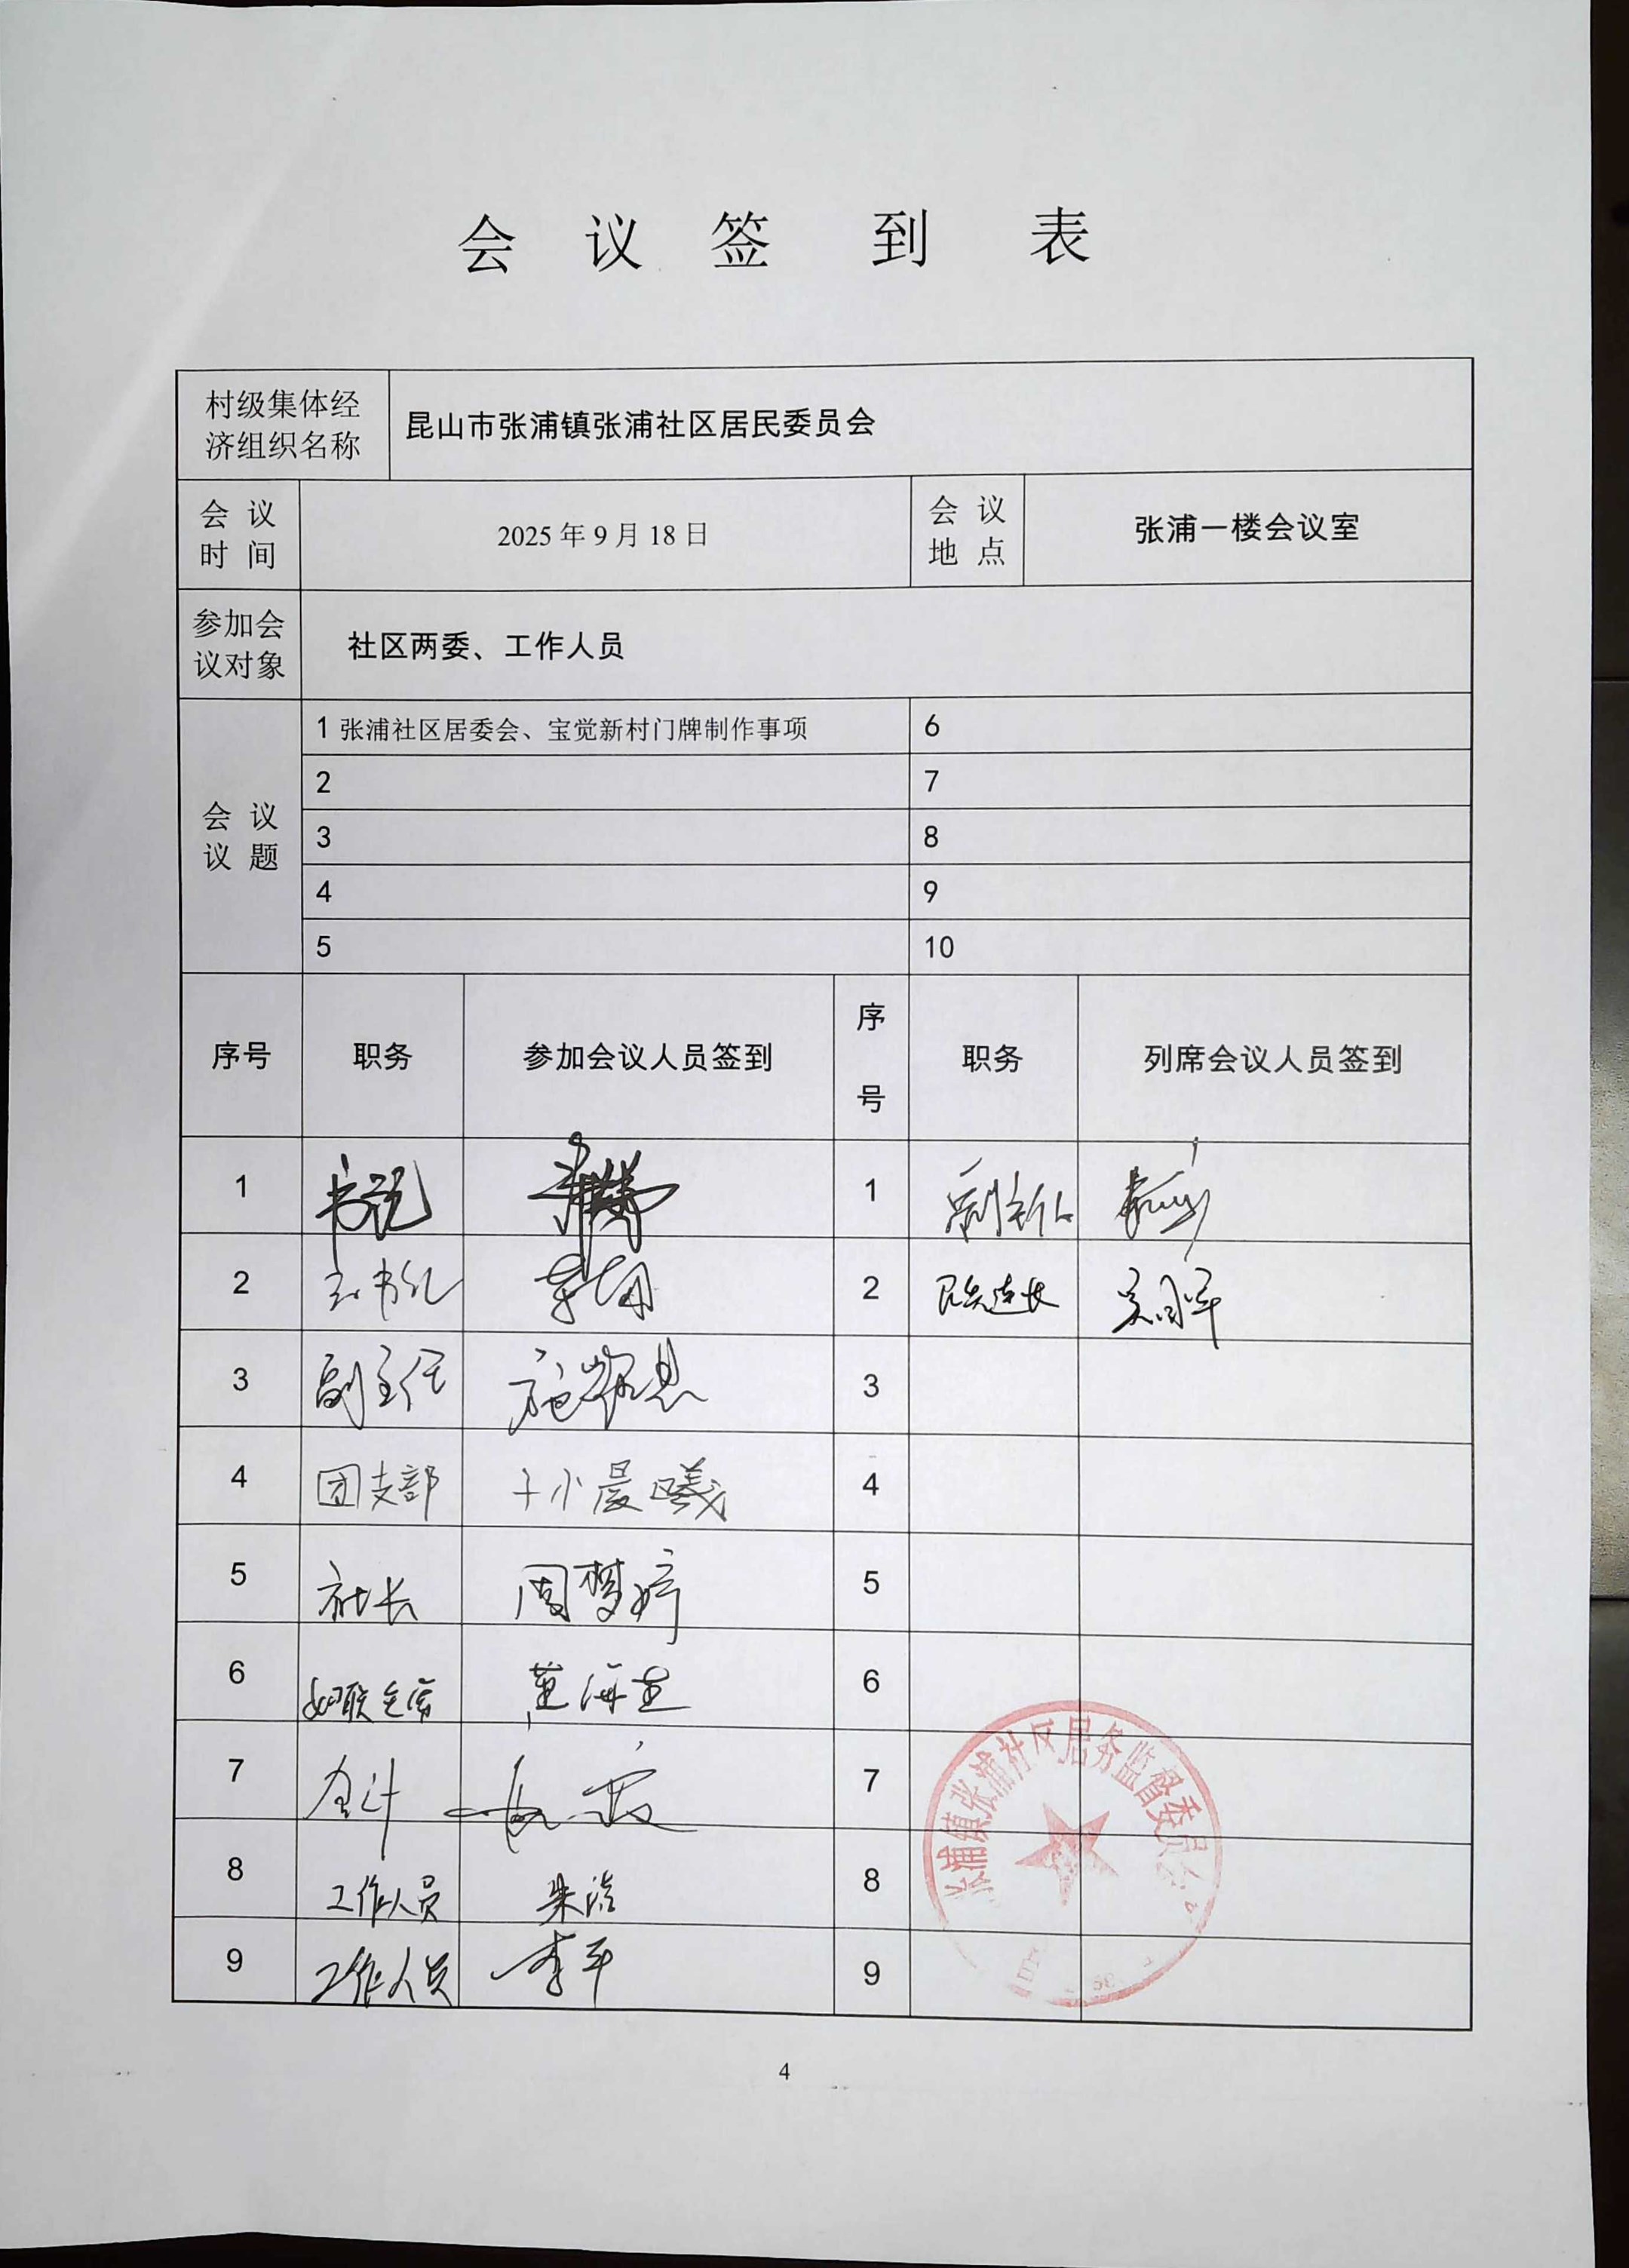 会 议 签 到 表
村级集体经
济组织名称
昆山市张浦镇张浦社区居民委员会
会 议
时 间
2025 年 9 月 18 日
会 议
地 点
张浦一楼会议室
参加会
议对象
社区两委、工作人员
会 议
议 题
1 张浦社区居委会、宝觉新村门牌制作事项
6
2
7
3
8
4
9
5
10
序号
职务
参加会议人员签到
序
号
职务
列席会议人员签到
1
书记
1
2
副书记
2
民兵连长
3
副主任
3
4
团支部
4
5
社长
周梦婷
5
6
妇联主席
6
7
会计
7
8
工作人员
朱浩
8
9
工作人员
李平
9
张浦镇张浦社区居务监督委员会
4